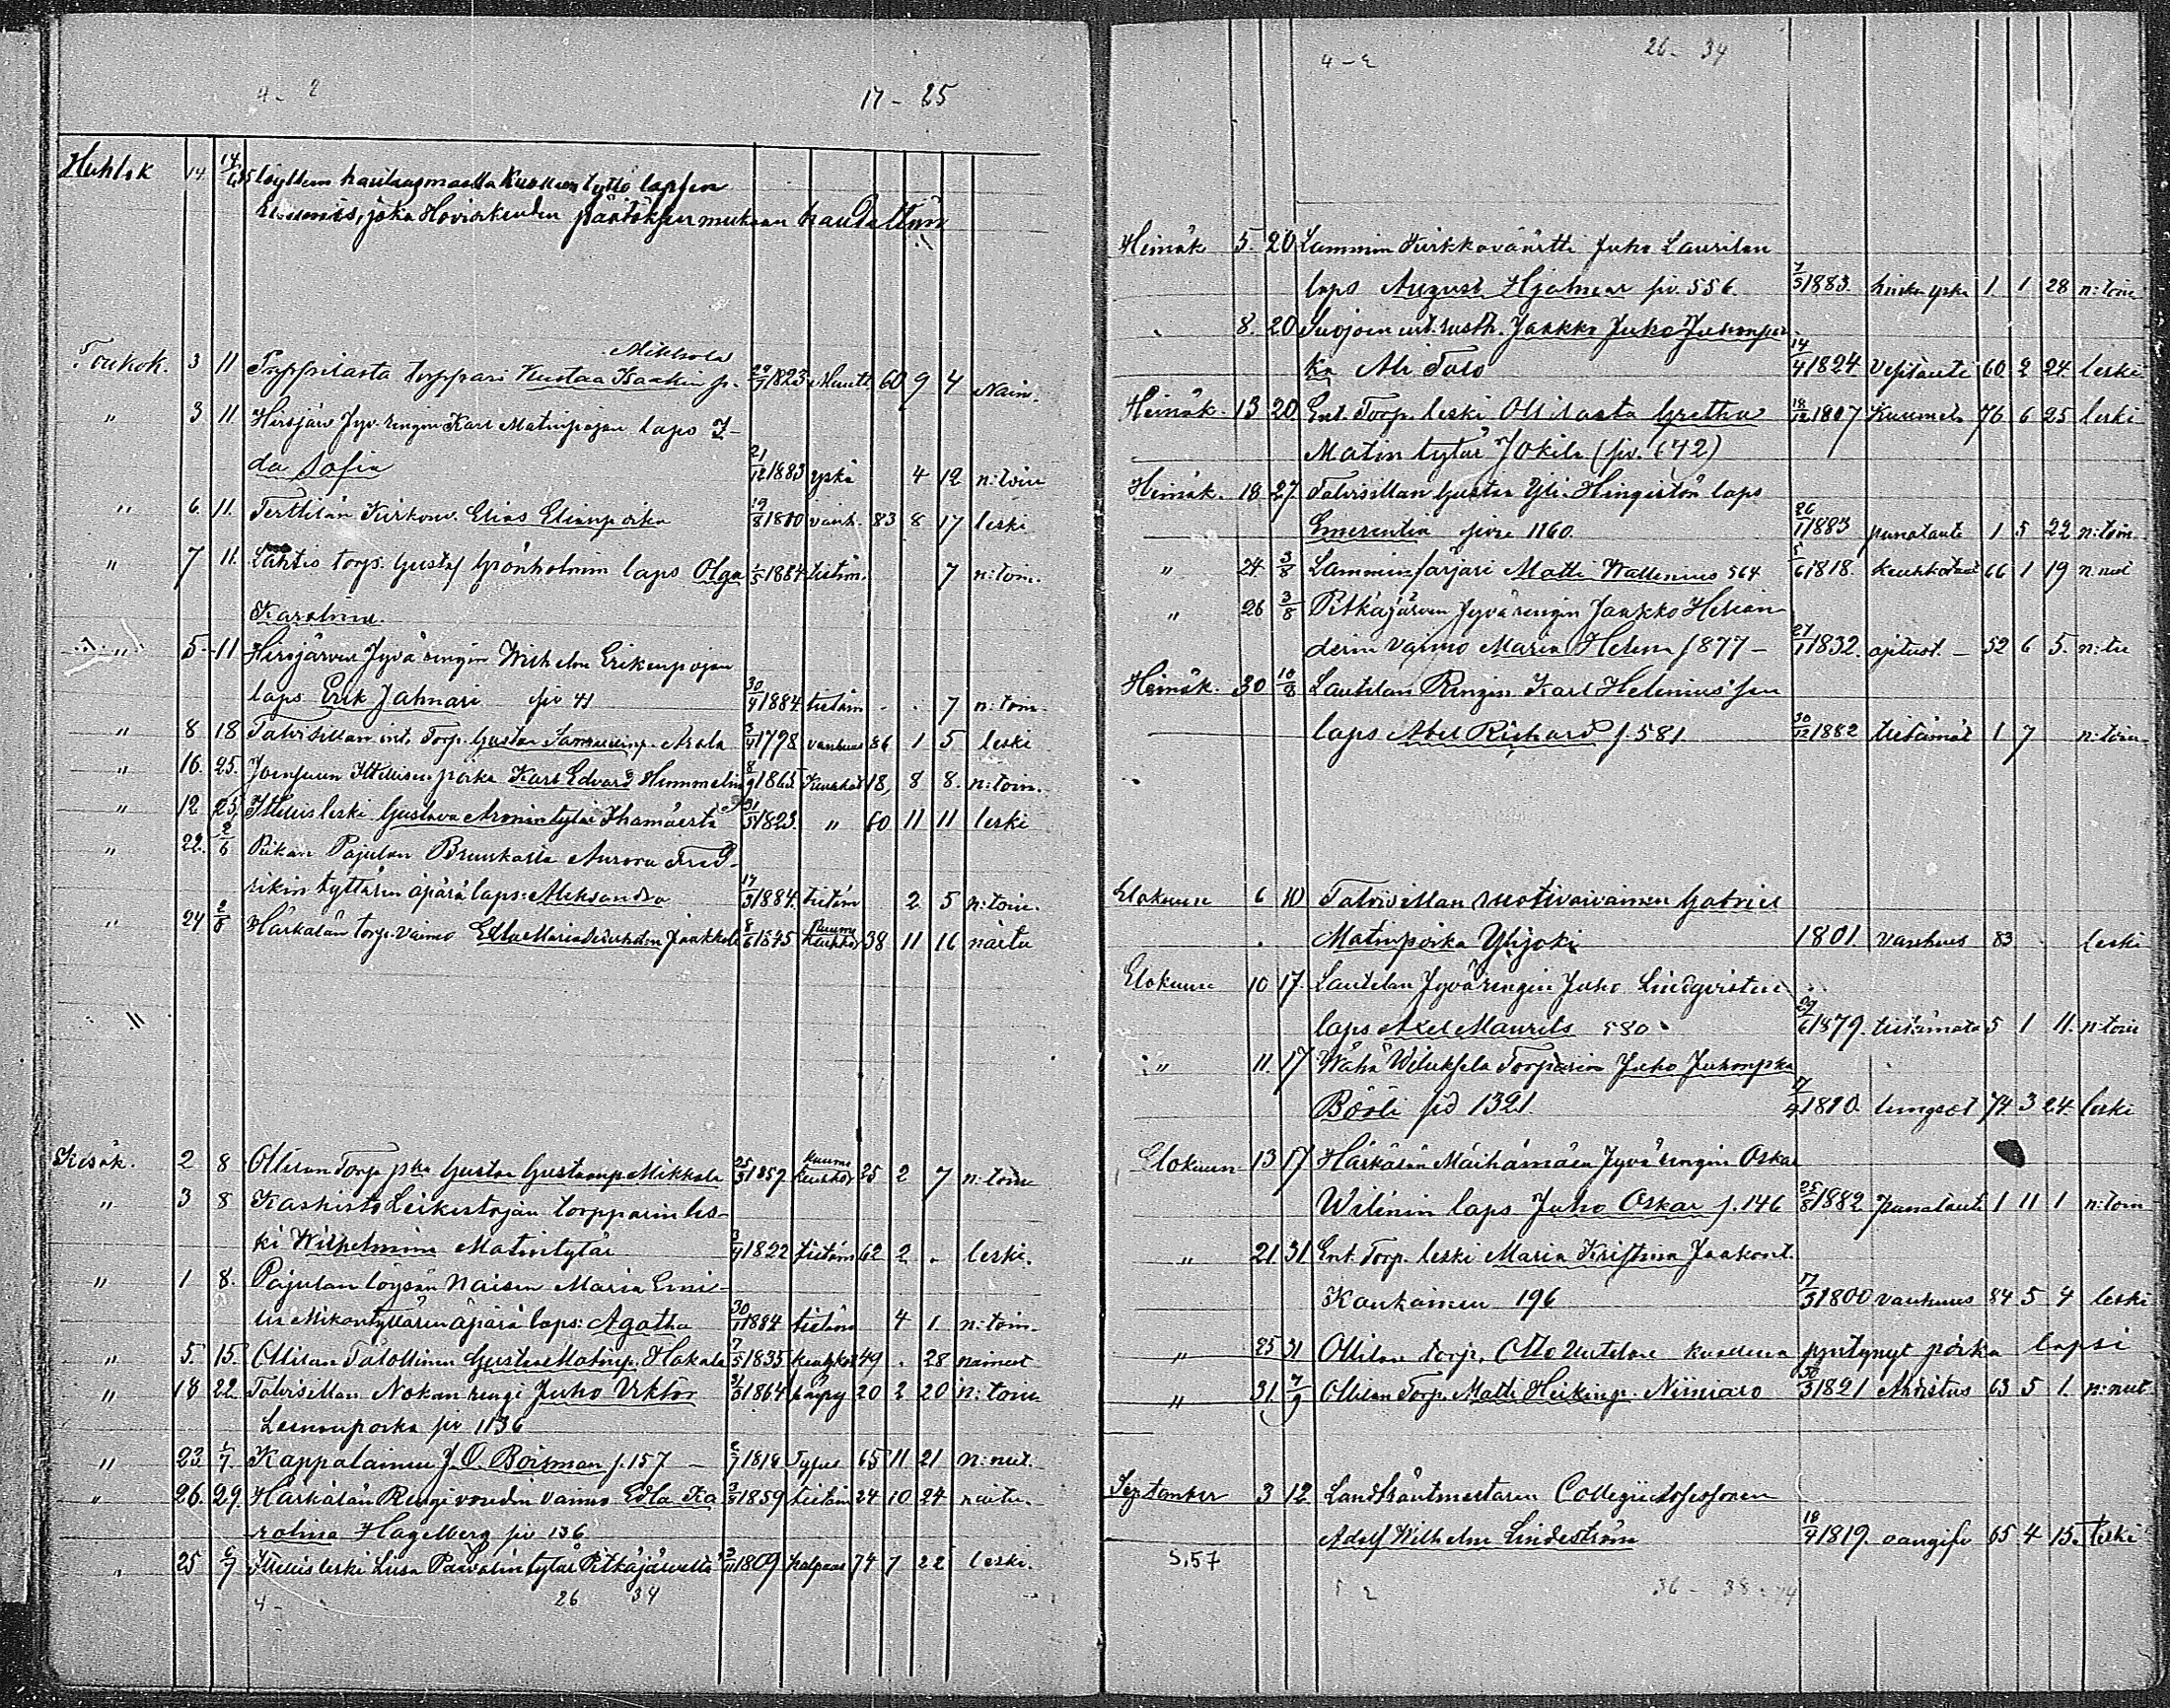 4 - 2
17 - 25
Huhtik 14 14/4 löyttiin hautausmaalla kuolleen tyttö lapsen
joka Hovioikeuden päätöksen mukaan haudattiin
Mikkola
Toukok. 3 11 torppari Kustaa Isaakin p. 29/7 1823 60 9 4 Nain.
" 3 11 Hirsjärv Jyv. rengin Karl Matinpojan laps I-
da Sofia 21/12 1883 yskä 4 12 n:toin
" 6. 11. Terttilän Kirkonv. Elias Elianpoika 19/8 1800 vanh. 83 8 17 leski
" 7 11. Lahtis torp. Gustaf Grönholmin laps Olga 1/5 1884 tietm. 7 n:toin.
Karolina.
" 5 11 Hirsjärven Jyvä rengin Wilhelm Erikenpojan
laps Erik Jalmari siv 41 30/4 1884 tietäm 7 n:toin.
" 8 18 Talvisillan ent. Torp. Gustaa Samuelinp. Arola 3/4 1798 vanhuus 86 1 5 leski
" 16. 25. Joensuun Itsellisen poika Karl Edvard Hummelin 8/9 1865 Keuhkot 18, 8 8. n:toin.
" 12 25 Itsellis leski Gustava Aronintytär Ihamäestä 31/5 1823. " 60 11 11 leski
" 22. 2/6 Piikan Pajulan Bruukalla Aurora Fred-
rikin tyttären äpärä laps: Aleksandra 17/3 1884. tietäm 2 5 n:toin.
" 24 2/6 Härkälän torp. vaimo Edla Maria Jaakkola 8/6 1845 Kuume Keuhkot 38 11 16 naitu
"
Kesäk. 2 8 Ollilan Torp pka Gustaa Gustaanp Mikkola 25/3 1859 Kuume Keuhkot 25 2 7 n:toin
" 3 8 Kaskisto Leikistöjän torpparin les-
ki Wilhelmina Matintytär 3/4 1822 tietäm 62 2 . leski.
" 1 8. Pajulan löysän Naisen Maria Emi-
lia Mikontyttären äpärä laps: Agatha 30/1 1884 tietäm 4 1. n:toin.
" 5. 15. Ollilan Talollinen Gustaa Matinp. Hakala 7/5 1835 keuhkot 49 . 28 nainut
" 18 22. Talvisillan Nokan rengi Juho Viktor 31/3 1864 20 2 20 n:toin
Leenanpoika siv 1136
" 23 6/7. Kappalainen J. O. Boisman s. 157 - 2/7 1818 Typus 65 11 21 n:nut.
" 26. 29. Härkälän Rengivoudin vaimo Edla Ka 2/8 1859 tietäm 24 10 24 naitu.
rolina Hagelberg siv 136.
" 25 6/7 Itsellis leski Liisa Paavalintytär Pitkäjärveltä 1809 halpaus 74 7 22 leski.
4 - 26 34
4 - 2
26 - 34
Heinäk 5. 20 Lammin Kirkkoväärtti Juho Laurilan
laps August Hjalmar siv. 556. 7/5 1883. hinku yskä 1. 1 28 n:toin
" 8. 20 Suojoen ent. rusth. Jaakko Juho Juhonpoi-
ka Ali Talo 14/4 1824 Vesitauti 60 2 24 leski
Heinäk. 13 20. Ent. Torp. leski Ollilasta Gretha 18/12 1807 Kuumet. 76 6 25 leski
Matin tytär Jokila (siv. 642)
Heinäk. 18 27. Talvisillan Gustaa Yli-Hingistön laps
Emerentia sivu 1160. 26/1 1883 punatauti 1 5 22 n:toin.
" 24. 3/8 Lammin färjäri Matti Wallenius 564 5/6 1818. keuhkotaut 66 1 19 n.nut
" 26 3/8 Pitkäjärven Jyvä rengin Jaakko Helean
derin vaimo Maria Helena s 877 - 21/1 1832. ajetust. - 52 6 5. n:tu
Heinäk. 30 10/8 Lautelan Rengin Karl Helenius'sen
laps Abel Richard s. 581. 30/12 1882 tietämät 1 7 n:toin.
Elokuun 6 10 Talvisillan ruotivaivainen Gabriel
Matinpoika Ylijoki 1801. vanhuus 83 leski
Elokuun 10 17. Lautelan Jyvä rengin Juho Lindqvistin
laps Axel Maurits 580. 29/6 1879. tietämätö 5 1 11. n:toin
" 11. 17 Wähä Wiluksela Torpparin Juho Juhonpka
Bööli sid 1321. 17/4 1810. lungsot 74 3 24 leski
Elokuun 13 17 Härkälän Maihamäen Jyvä rengin Oskar
Wilenin laps Juho Oskar s. 146 25/8 1882 Punatauti 1 11 1 n:toin
" 21 31 Ent. Torp. leski Maria Kristina Jaakont.
Kaukainen 196 17/3 1800 vanhuus 84 5 4 leski
" 25 31 Ollilan torp. Otto Uutelan kuollena syntynyt poika lapsi
" 31. 7/9 Ollilan Torp. Matti Heikinp. Niiniaro 30/3 1821 Ahdistus 63 5 1. n:nut.
September 3 12 Landträntmestaren Collegiiassessoren
Adolf Wilhelm Lindeström 18/4 1819. 65 4 15. leski
S. 57
36 - 38 - 44